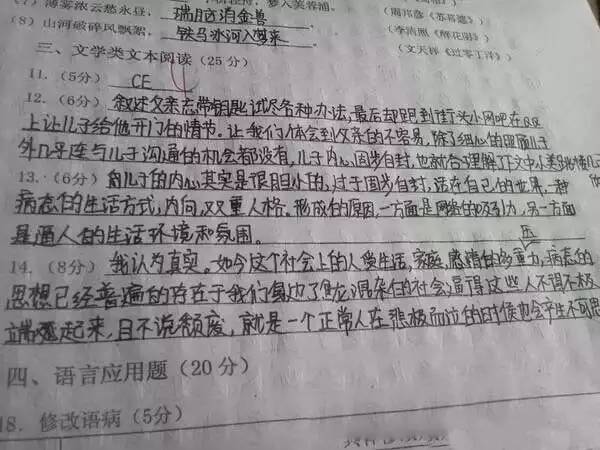 (7) 薄雾浓云愁永昼,瑞脑消金兽
(李清照《醉花阴》)
(8) 山河破碎风飘絮,铁马冰河入梦来
(文天祥《过零丁洋》)
三、文学类文本阅读(25分)
11.(5分) CE
12.(6分) 叙述父亲忘带钥匙试尽各种办法,最后却跑到街头小网吧在QQ
上让儿子给他开门的情节。让我们体会到父亲的不容易,除了细心的照顾儿子
外几乎连与儿子沟通的机会都没有,儿子内心固步自封,也
13.(6分) 儿子的内心其实是很胆小的,过于固步自封,活在自己的世界,一种
病态的生活方式,内向,双重人格。形成的原因,一方面是网络的吸引力,另一方面
是逼人的生活环境和氛围。
14.(8分) 我认为真实。如今这个社会上的人受生活,家庭,感情的多重压力,病态的
思想已经普遍的存在于我们身边了,社会逼得这些人不得不极
端起来,且不说颓废,就是一个正常人在悲极而泣的时候也会产生不可思
四、语言应用题(20分)
18. 修改语病(5分)